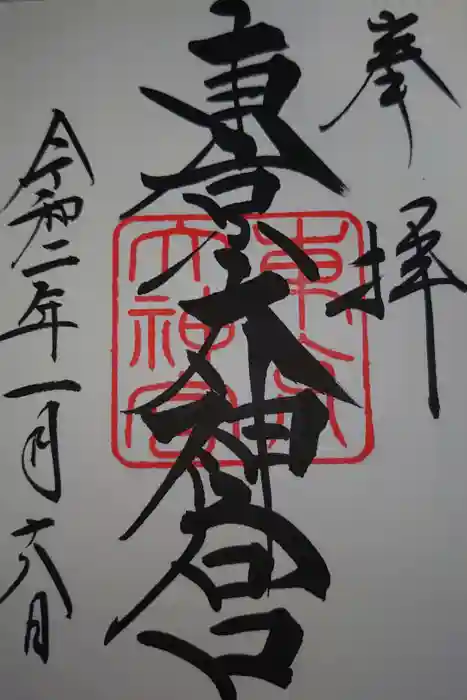 奉拝
東京大神宮
令和二年一月十八日
東京
大神宮